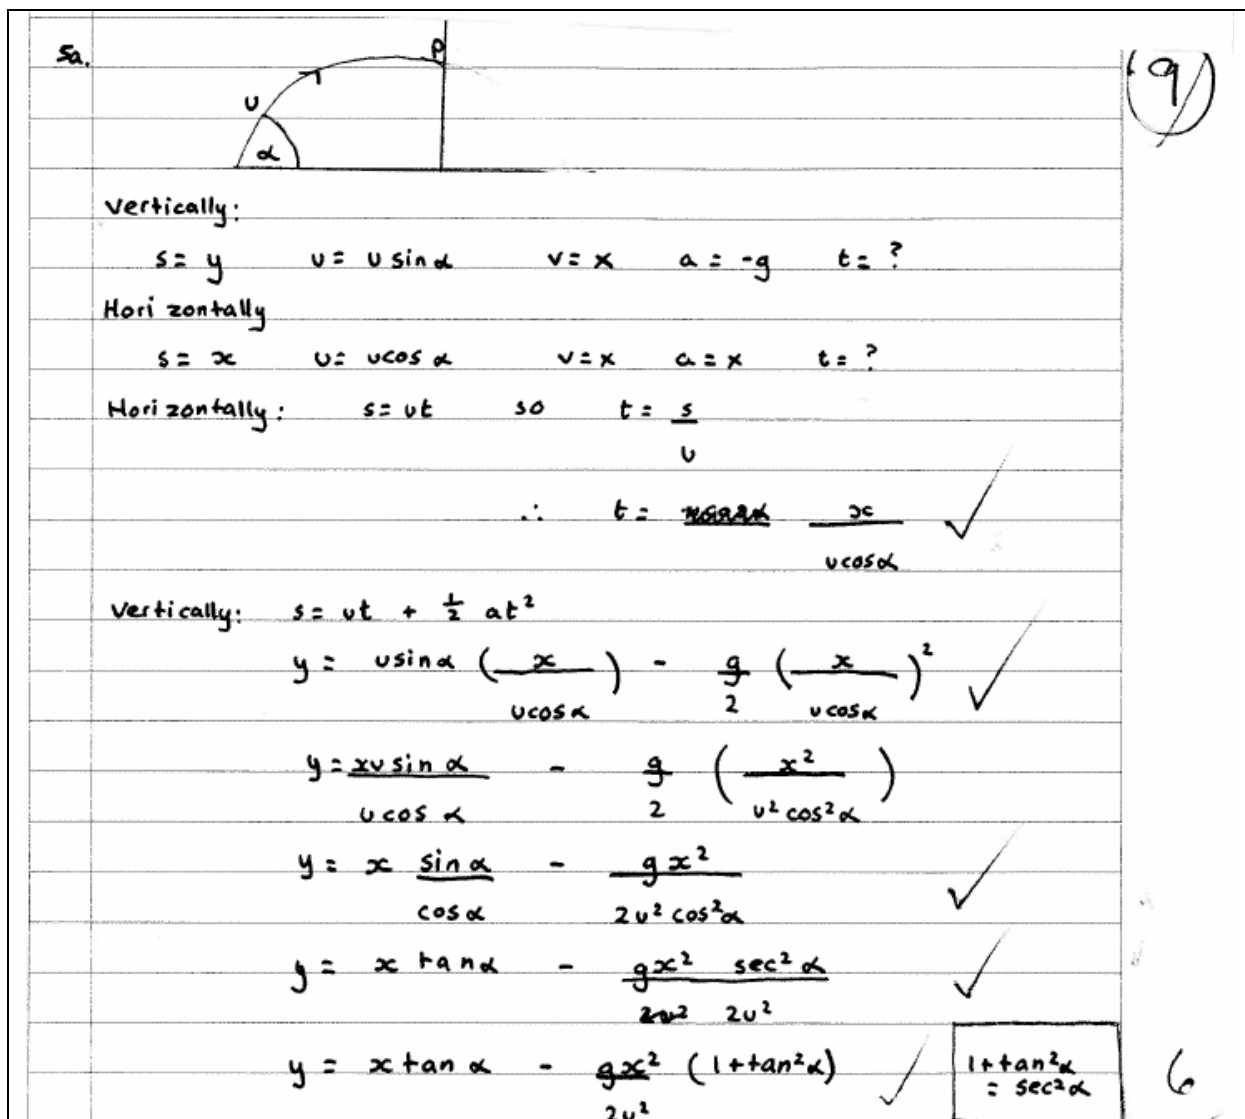 5a.
P
U
α
9
Vertically:
s = y u = U sinα v = x a = -g t = ?
Horizontally
s = x u = ucos α v = x a = x t = ?
Horizontally: s = ut so t = s/u
∴ t = x/(ucosα)
Vertically: s = ut + 1/2 at²
y = usinα (x/(ucosα)) - g/2 (x/(ucosα))²
y = xusin α/(ucos α) - g/2 (x²/(u² cos²α))
y = x sinα/cosα - gx²/(2u² cos²α)
y = x tanα - gx² sec²α/(2u²)
y = xtanα - gx²/(2u²) (1+tan²α)
1+tan²α
= sec²α
6